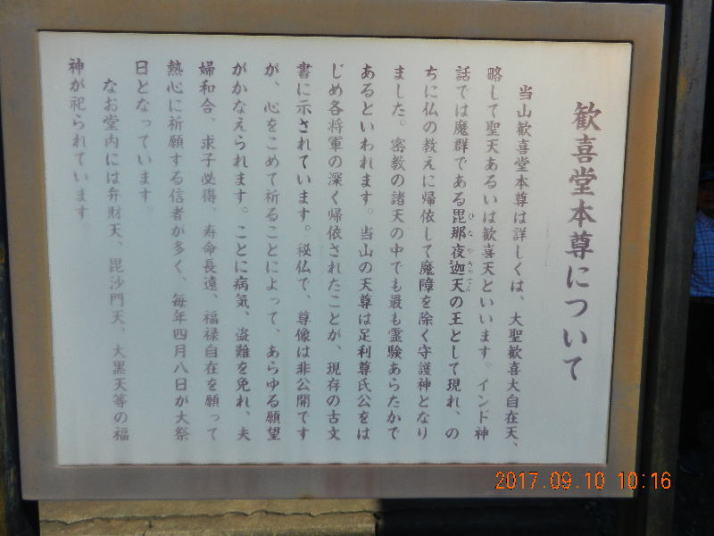 歓喜堂本尊について
当山歓喜堂本尊は詳しくは、大聖歓喜大自在天、
略して聖天あるいは歓喜天といいます。インド神
話では魔群である毘那夜迦天の王として現れ、の
ちに仏の教えに帰依して魔障を除く守護神となり
ました。密教の諸天の中でも最も霊験あらたかで
あるといわれます。当山の天尊は足利尊氏公をは
じめ各将軍の深く帰依されたことが、現存の古文
書に示されています。秘仏で、尊像は非公開です
が、心をこめて祈ることによって、あらゆる願望
がかなえられます。ことに病気、盗難を免れ、夫
婦和合、求子必得、寿命長遠、福禄自在を願って
熱心に祈願する信者が多く、毎年四月八日が大祭
日となっています。
なお堂内には弁財天、毘沙門天、大黒天等の福
神が祀られています
2017.09.10 10:16